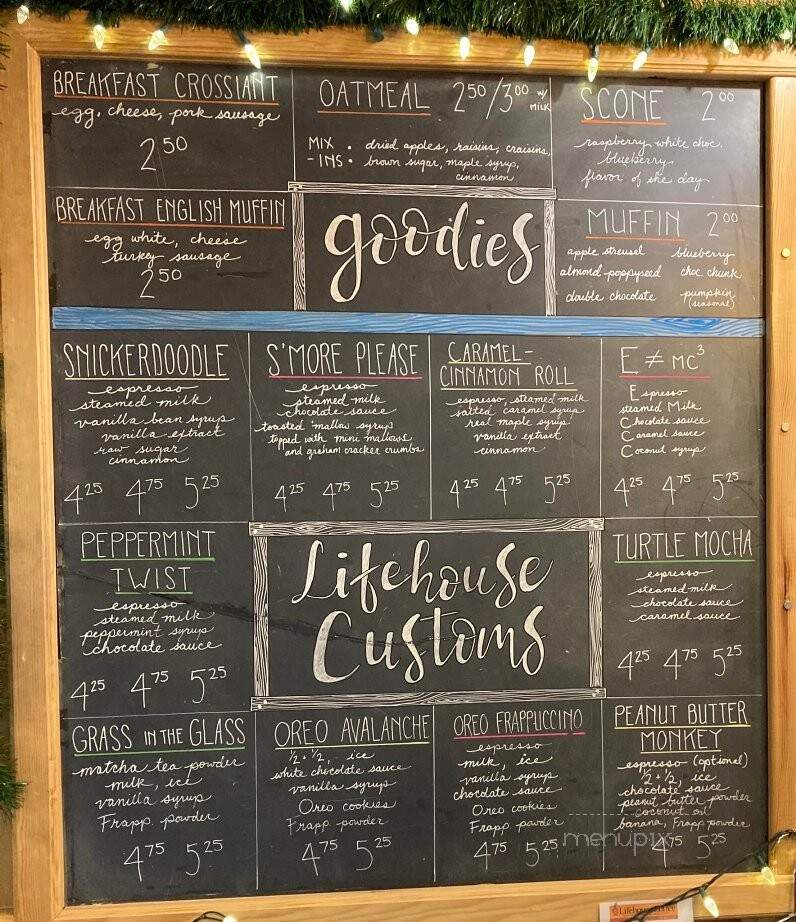 BREAKFAST CROSSIANT
egg, cheese, pork sausage
2.50
OATMEAL 2.50/3.00 w/ milk
MIX • dried apples, raisins, craisins,
-INS • brown sugar, maple syrup,
cinnamon
SCONE 2.00
raspberry white choc.
blueberry
flavor of the day
BREAKFAST ENGLISH MUFFIN
egg white, cheese
turkey sausage
2.50
goodies
MUFFIN 2.00
apple streusel blueberry
almond-poppyseed choc chunk
double chocolate pumpkin
(seasonal)
SNICKERDOODLE
espresso
steamed milk
vanilla bean syrup
vanilla extract
raw sugar
cinnamon
4.25 4.75 5.25
S'MORE PLEASE
espresso
steamed milk
chocolate sauce
toasted 'mallow syrup
topped with mini mallows
and graham cracker crumbs
4.25 4.75 5.25
CARAMEL-
CINNAMON ROLL
espresso, steamed milk
salted caramel syrup
real maple syrup
vanilla extract
cinnamon
4.25 4.75 5.25
E ≠ MC³
Espresso
steamed Milk
Chocolate sauce
Caramel sauce
Coconut syrup
4.25 4.75 5.25
PEPPERMINT
TWIST
espresso
steamed milk
peppermint syrup
chocolate sauce
4.25 4.75 5.25
Lifehouse
Customs
TURTLE MOCHA
espresso
steamed milk
chocolate sauce
caramel sauce
4.25 4.75 5.25
GRASS IN THE GLASS
matcha tea powder
milk, ice
vanilla syrup
Frapp. powder
4.75 5.25
OREO AVALANCHE
½ + ½, ice
white chocolate sauce
vanilla syrup
Oreo cookies
Frapp. powder
4.75 5.25
OREO FRAPPUCCINO
espresso
milk, ice
vanilla syrup
chocolate sauce
Oreo cookies
Frapp. powder
4.75 5.25
PEANUT BUTTER
MONKEY
espresso (optional)
½ + ½, ice
chocolate sauce
peanut butter powder
coconut oil
banana, Frapp powder
4.75 5.25
menupix